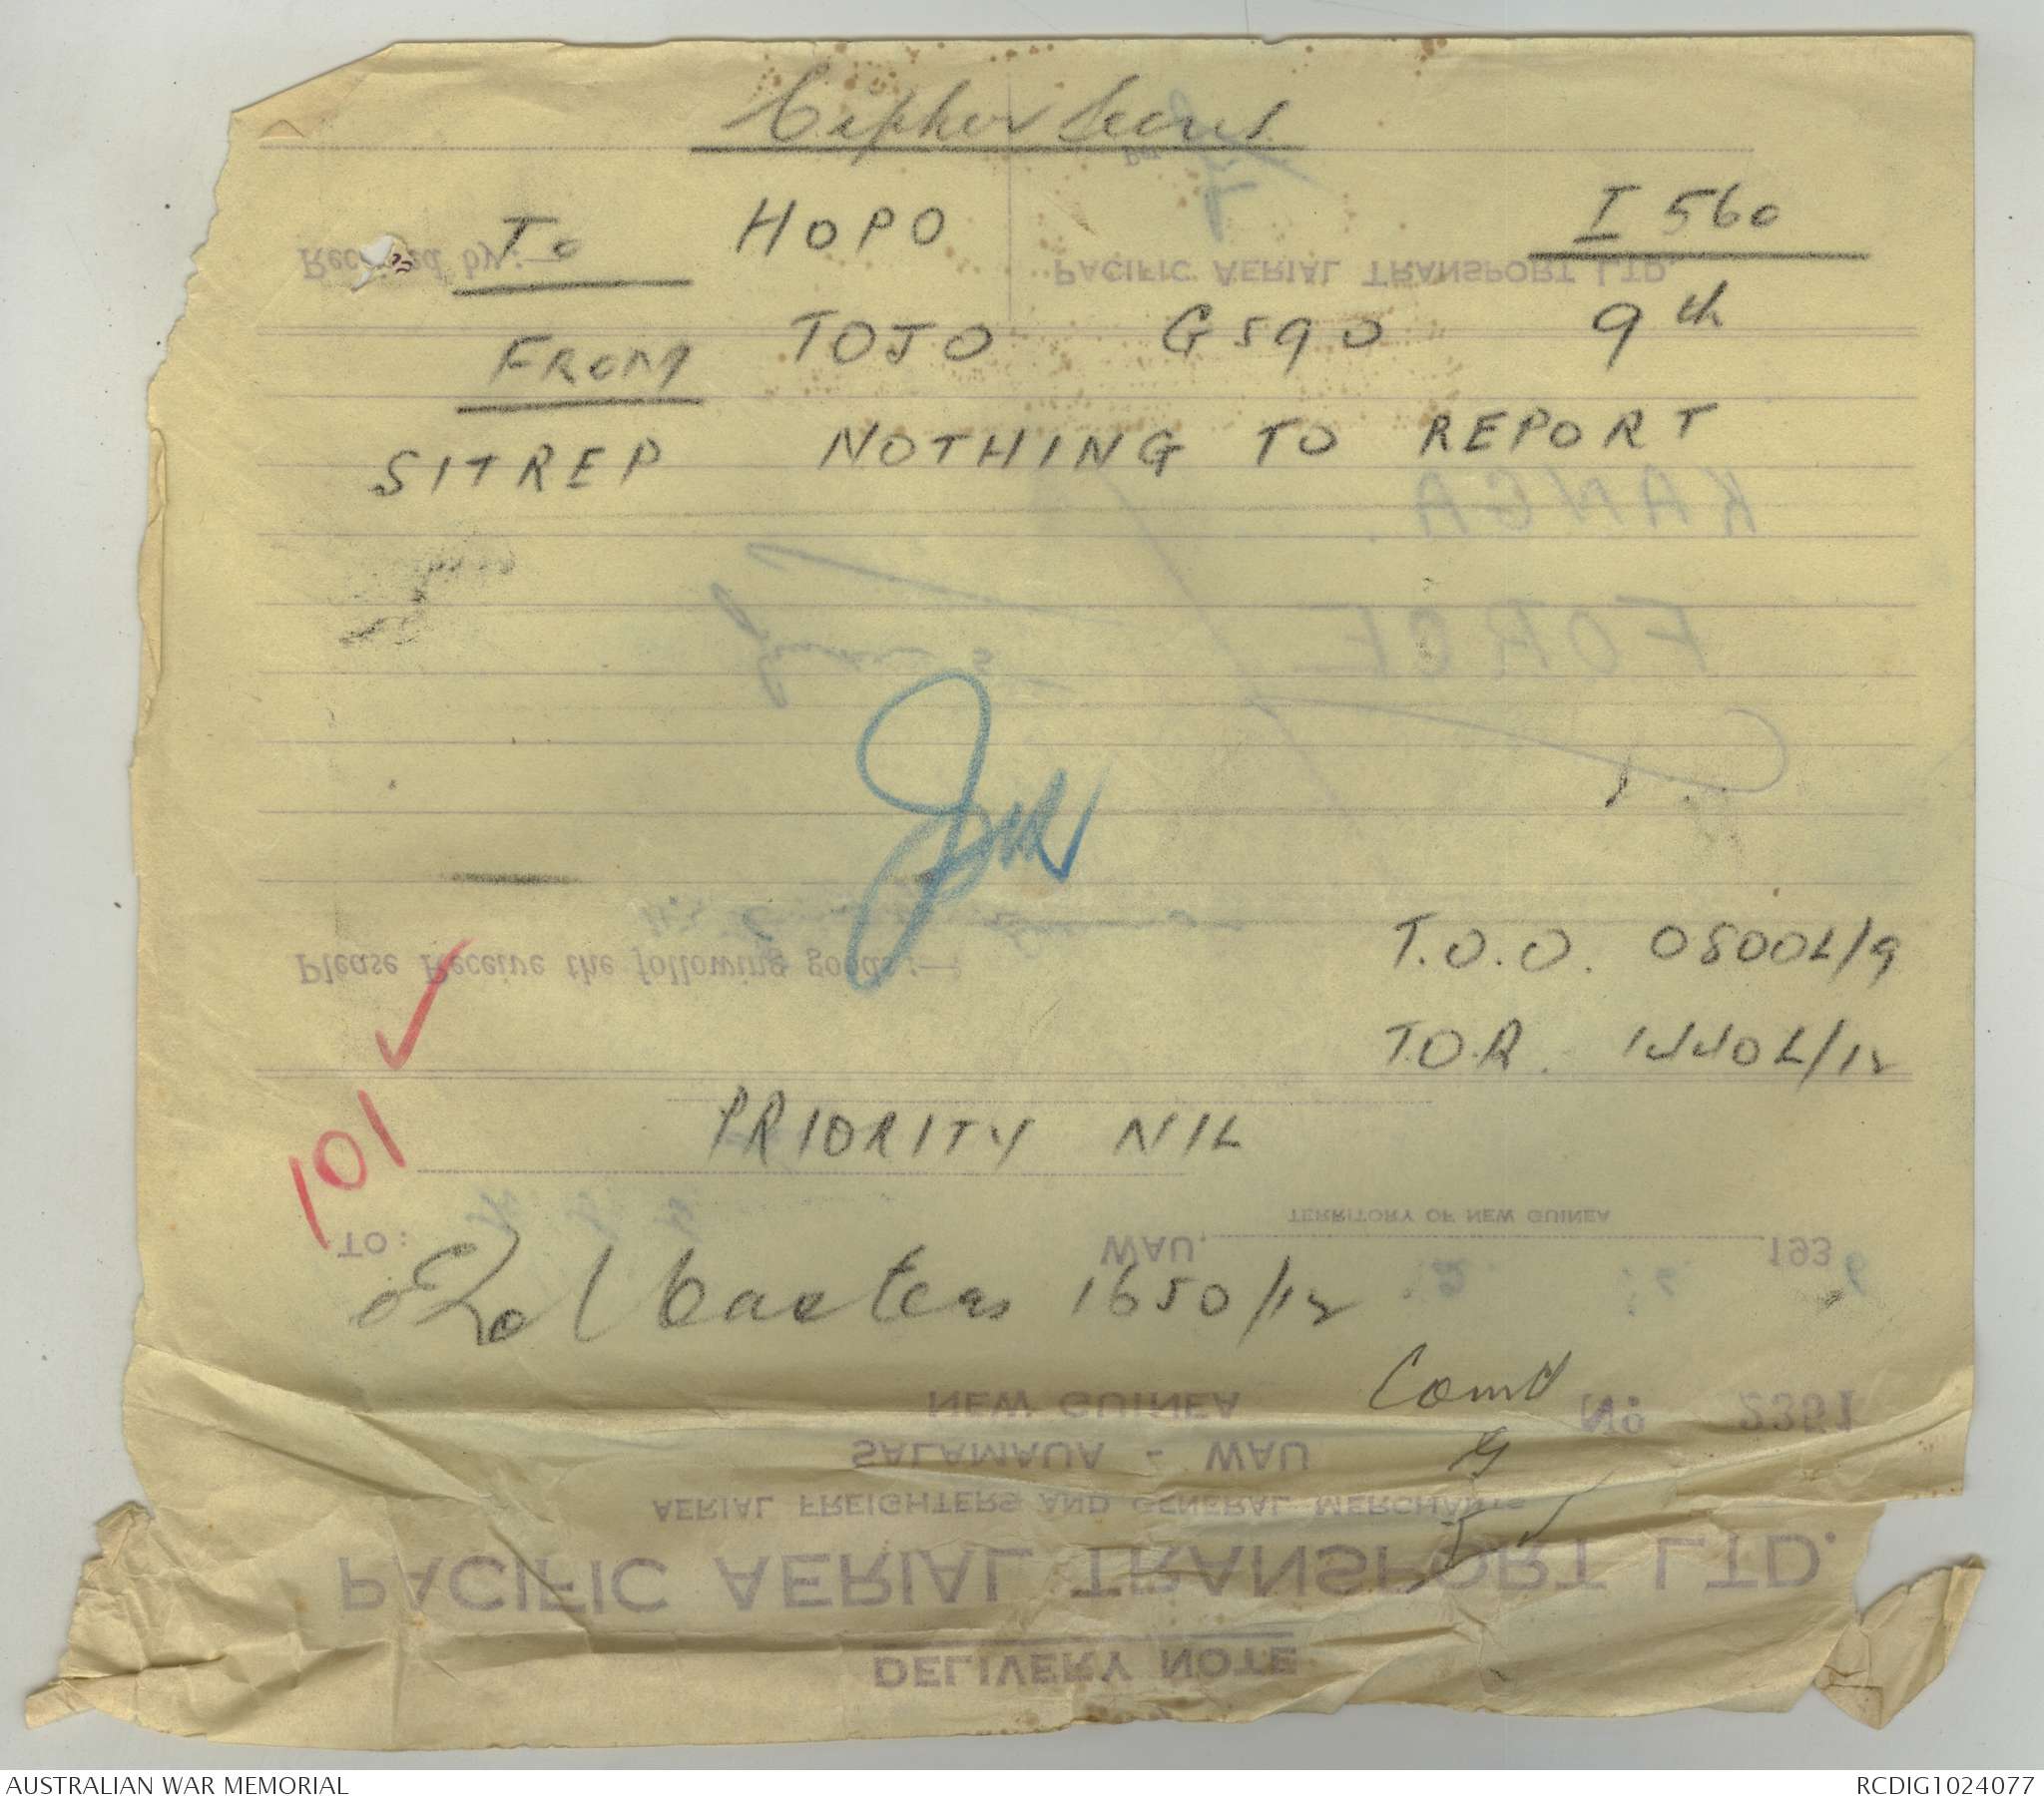 Cipher Secret
To HOPO I 560
FROM TOJO G590 9th
SITREP NOTHING TO REPORT
KANGA
FORCE
T.O.O. 0800L/9
T.O.R. 1440L/12
Please Receive the following goods:—
101
PRIORITY NIL
TERRITORY OF NEW GUINEA
TO: WAU, 193
1650/12
Comd
G
NEW GUINEA No 2351
SALAMAUA - WAU
AERIAL FREIGHTERS AND GENERAL MERCHANTS
PACIFIC AERIAL TRANSPORT LTD.
DELIVERY NOTE
Received by:—
PACIFIC AERIAL TRANSPORT LTD.
AUSTRALIAN WAR MEMORIAL RCDIG1024077